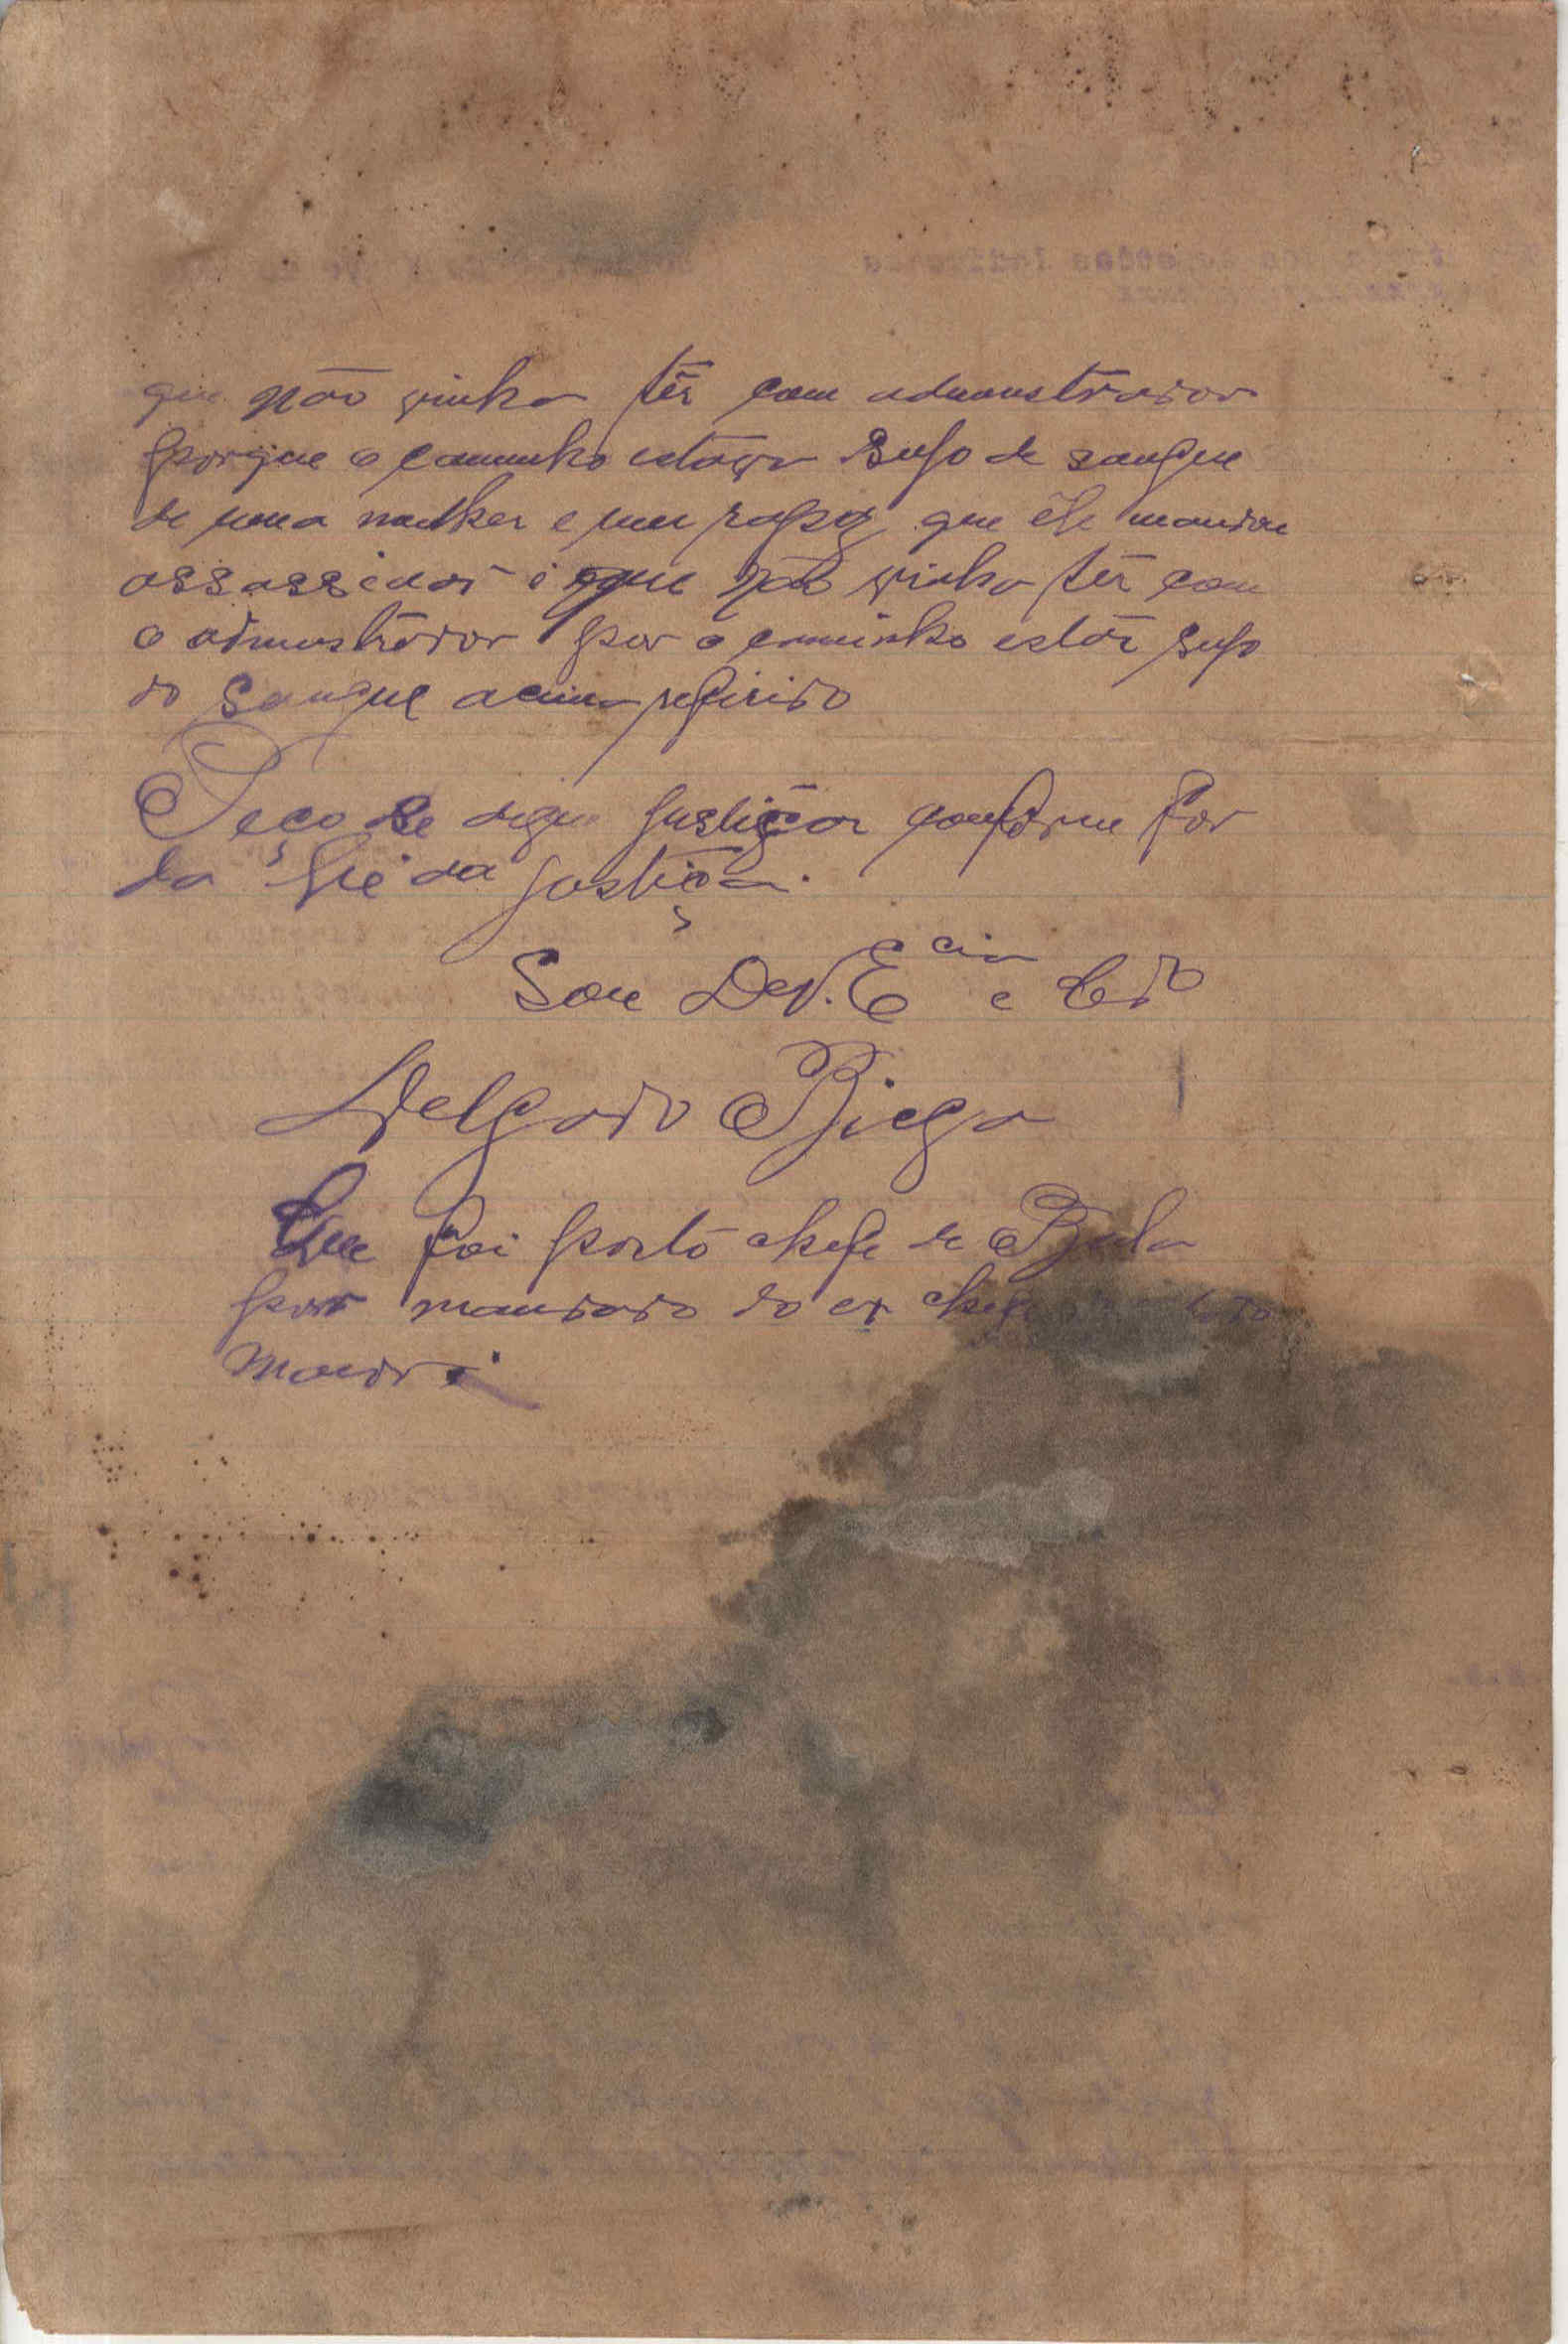 que não vinha têr com admonstrador
porque o caminho estava sujo de sangue
de uma mulher e um rapaz que êle mandou
assassinar e que não vinha têr com
o admnstrador por o caminho estár sujo
do sangue acima referido
Peço se digne justiçar conforme for
da lei da justiça.
Sou De V. E cia e Cr do
Delgado Biega
Que foi posto chefe de Bula
por mandado do ex chefe